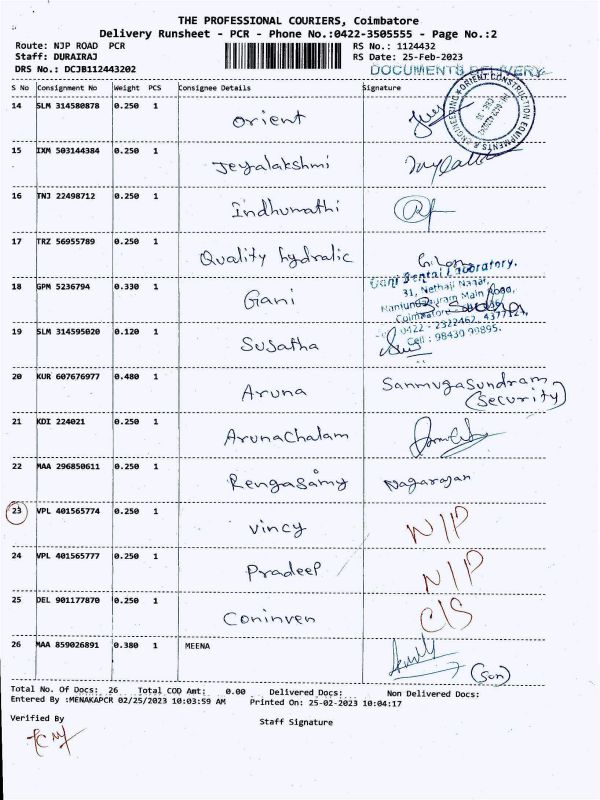 THE PROFESSIONAL COURIERS, Coimbatore
Delivery Runsheet - PCR - Phone No.:0422-3505555 - Page No.:2
Route: NJP ROAD PCR RS No.: 1124432
Staff: DURAIRAJ RS Date: 25-Feb-2023
DRS No.: DCJB112443202 DOCUMENTS DELIVERY
S No Consignment No Weight PCS Consignee Details Signature
14 SLM 314580878 0.250 1 Orient
ORIENT CONSTRUCTION EQUIPMENTS & ENGINEERING
15 IXM 503144384 0.250 1 Jeyalakshmi
16 TNJ 22498712 0.250 1 Indhumathi
17 TRZ 56955789 0.250 1 Quality hydralic
18 GPM 5236794 0.330 1 Gani
Gani Dental Laboratory.
31, Nethaji Nagar,
Main Road,
Coimbatore
0422 - 2322462, 4377124,
Cell : 98430 90895.
19 SLM 314595020 0.120 1 Susatha
20 KUR 607676977 0.480 1 Aruna Sanmugasundram
(Security)
21 KDI 224021 0.250 1 Arunachalam
22 MAA 296850611 0.250 1 Rengasamy Nagarajan
23 VPL 401565774 0.250 1 Vincy N/P
24 VPL 401565777 0.250 1 Pradeep N/P
25 DEL 901177870 0.250 1 Coninven C/S
26 MAA 859026891 0.380 1 MEENA
(Son)
Total No. Of Docs: 26 Total COD Amt: 0.00 Delivered Docs: Non Delivered Docs:
Entered By :MENAKAPCR 02/25/2023 10:03:59 AM Printed On: 25-02-2023 10:04:17
Verified By Staff Signature